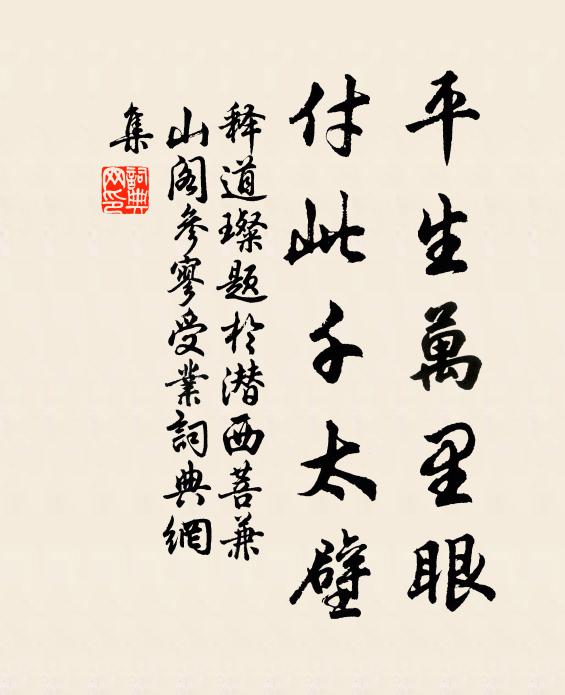 平生萬里眼
付此千太壁
释道璨题於潜西菩兼
山阁參寥受業詞典網
集
詞典網印